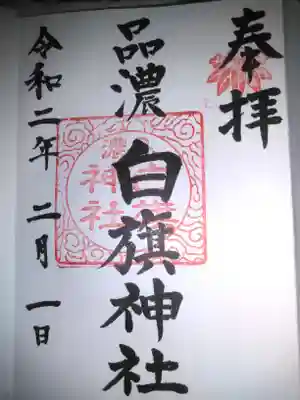 奉拝
品濃白旗神社
令和二年二月一日